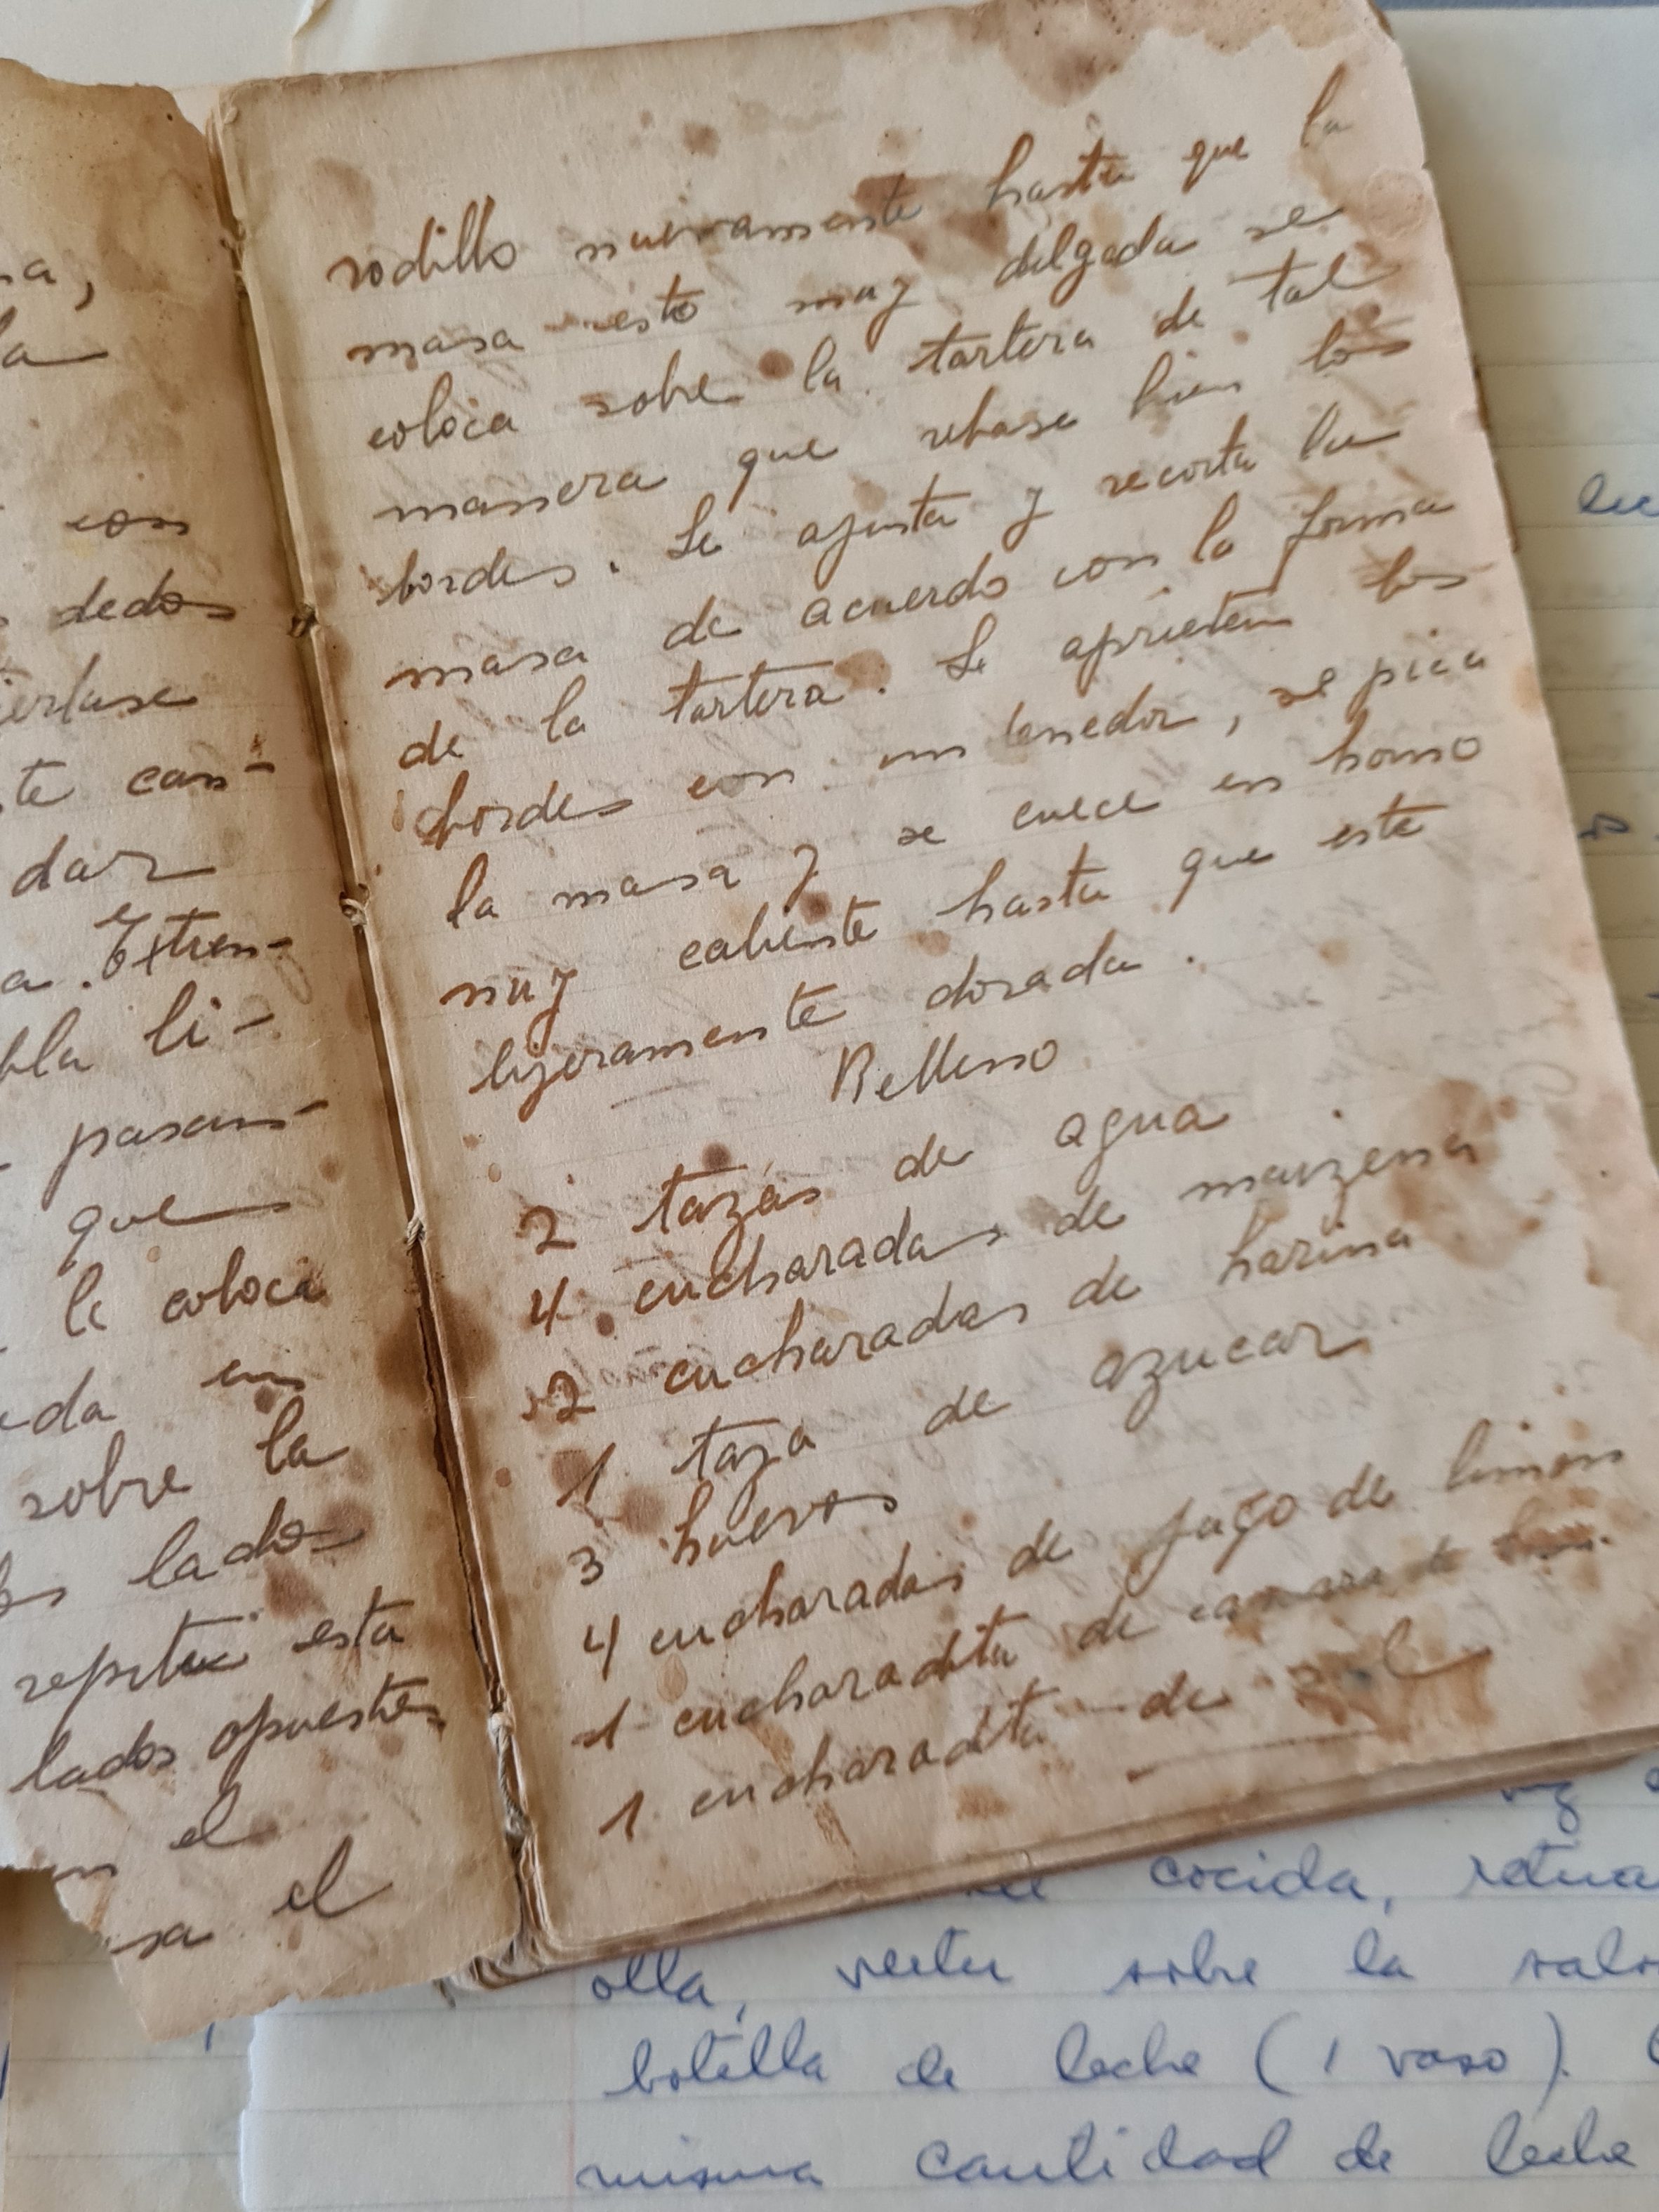 na,
la
con
dedos
te can-
dar
a. Exten-
bla li-
pasan-
que
le coloca
da en
sobre la
lados
repetir esta
lados opuestos
en el
sa el
rodillo nuevamente hasta que la
masa este muy delgada se
coloca sobre la tartera de tal
manera que rebase bien los
bordes. Se ajusta y recorta la
masa de acuerdo con la forma
de la tartera. Se aprieten los
bordes con un tenedor, se pica
la masa y se cuece en horno
muy caliente hasta que este
ligeramente dorada.
Relleno
2 tazas de agua
4 cucharadas de maizena
2 cucharadas de harina
1 taza de azucar
3 huevos
4 cucharadas de jugo de limon
1 cucharadita de cascara de
1 cucharadita de sal
cocida,
olla, verter sobre la
botella de leche (1 vaso).
misma cantidad de leche